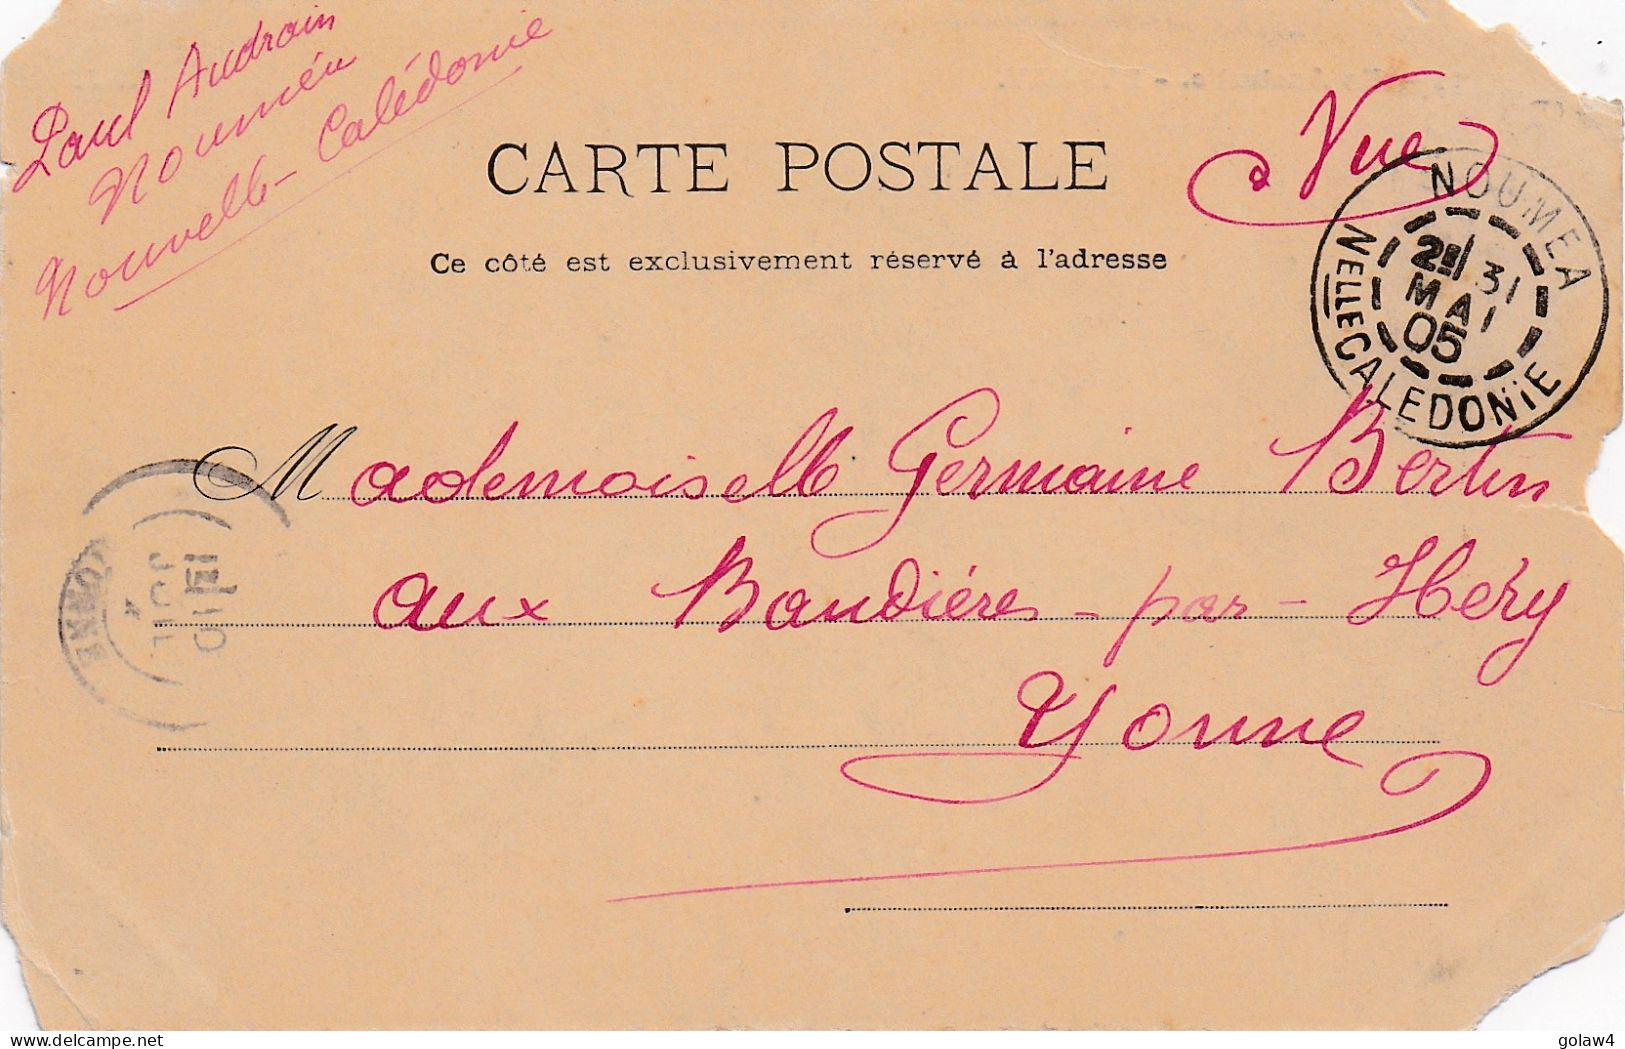 Paul Audrain
Nouméa
Nouvelle-Calédonie
CARTE POSTALE
Vue
Ce côté est exclusivement réservé à l'adresse
NOUMEA
2E 31
MAI
05
NELLE CALEDONIE
Mademoiselle Germaine Bertin
aux Baudières - par - Héry
Yonne
YONNE
JUIL
delcampe.net
golaw4